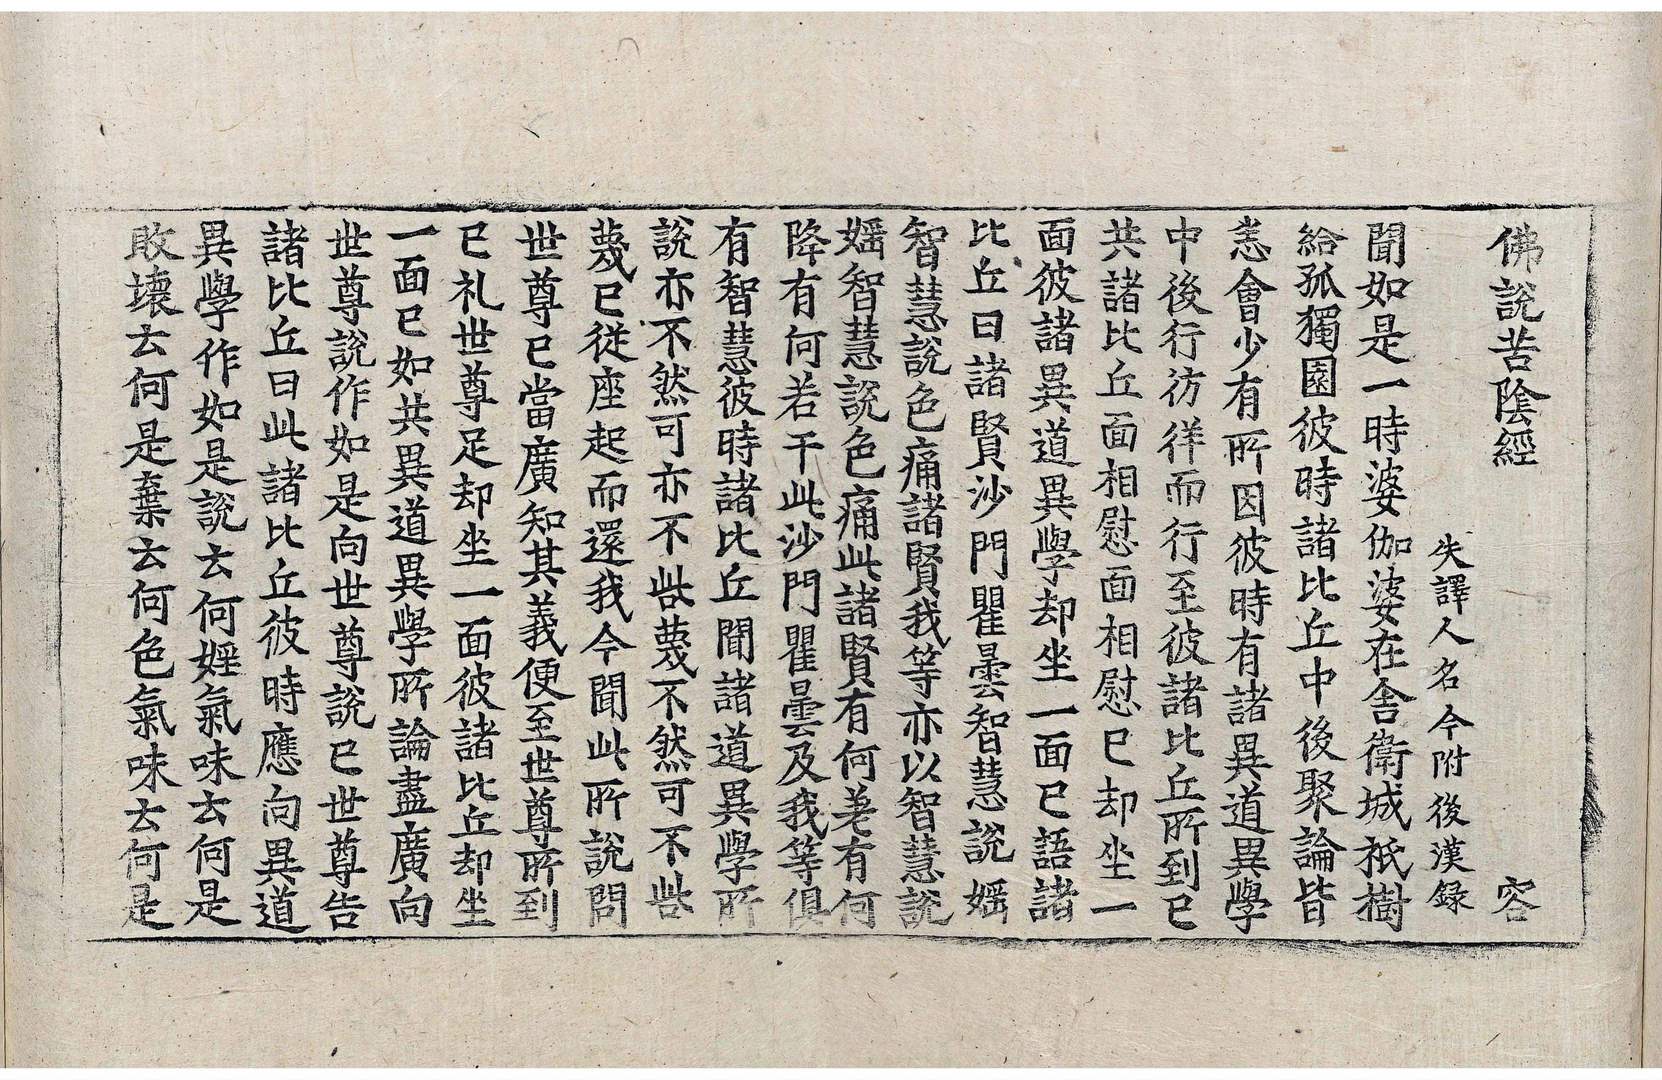 佛說苦陰經 容
失譯人名今附後漢錄
聞如是一時婆伽婆在舍衛城祇樹
給孤獨園彼時諸比丘中後聚論皆
恚會少有所因彼時有諸異道異學
中後行彷徉而行至彼諸比丘所到已
共諸比丘面相慰面相慰已却坐一
面彼諸異道異學却坐一面已語諸
比丘曰諸賢沙門瞿曇智慧說婬
智慧說色痛諸賢我等亦以智慧說
婬智慧說色痛此諸賢有何差有何
降有何若干此沙門瞿曇及我等俱
有智慧彼時諸比丘聞諸道異學所
說亦不然可亦不呰蔑不然可不呰
蔑已從座起而還我今聞此所說問
世尊已當廣知其義便至世尊所到
已礼世尊足却坐一面彼諸比丘却坐
一面已如共異道異學所論盡廣向
世尊說作如是向世尊說已世尊告
諸比丘曰此諸比丘彼時應向異道
異學作如是說云何婬氣味云何是
敗壞云何是棄云何色氣味云何是